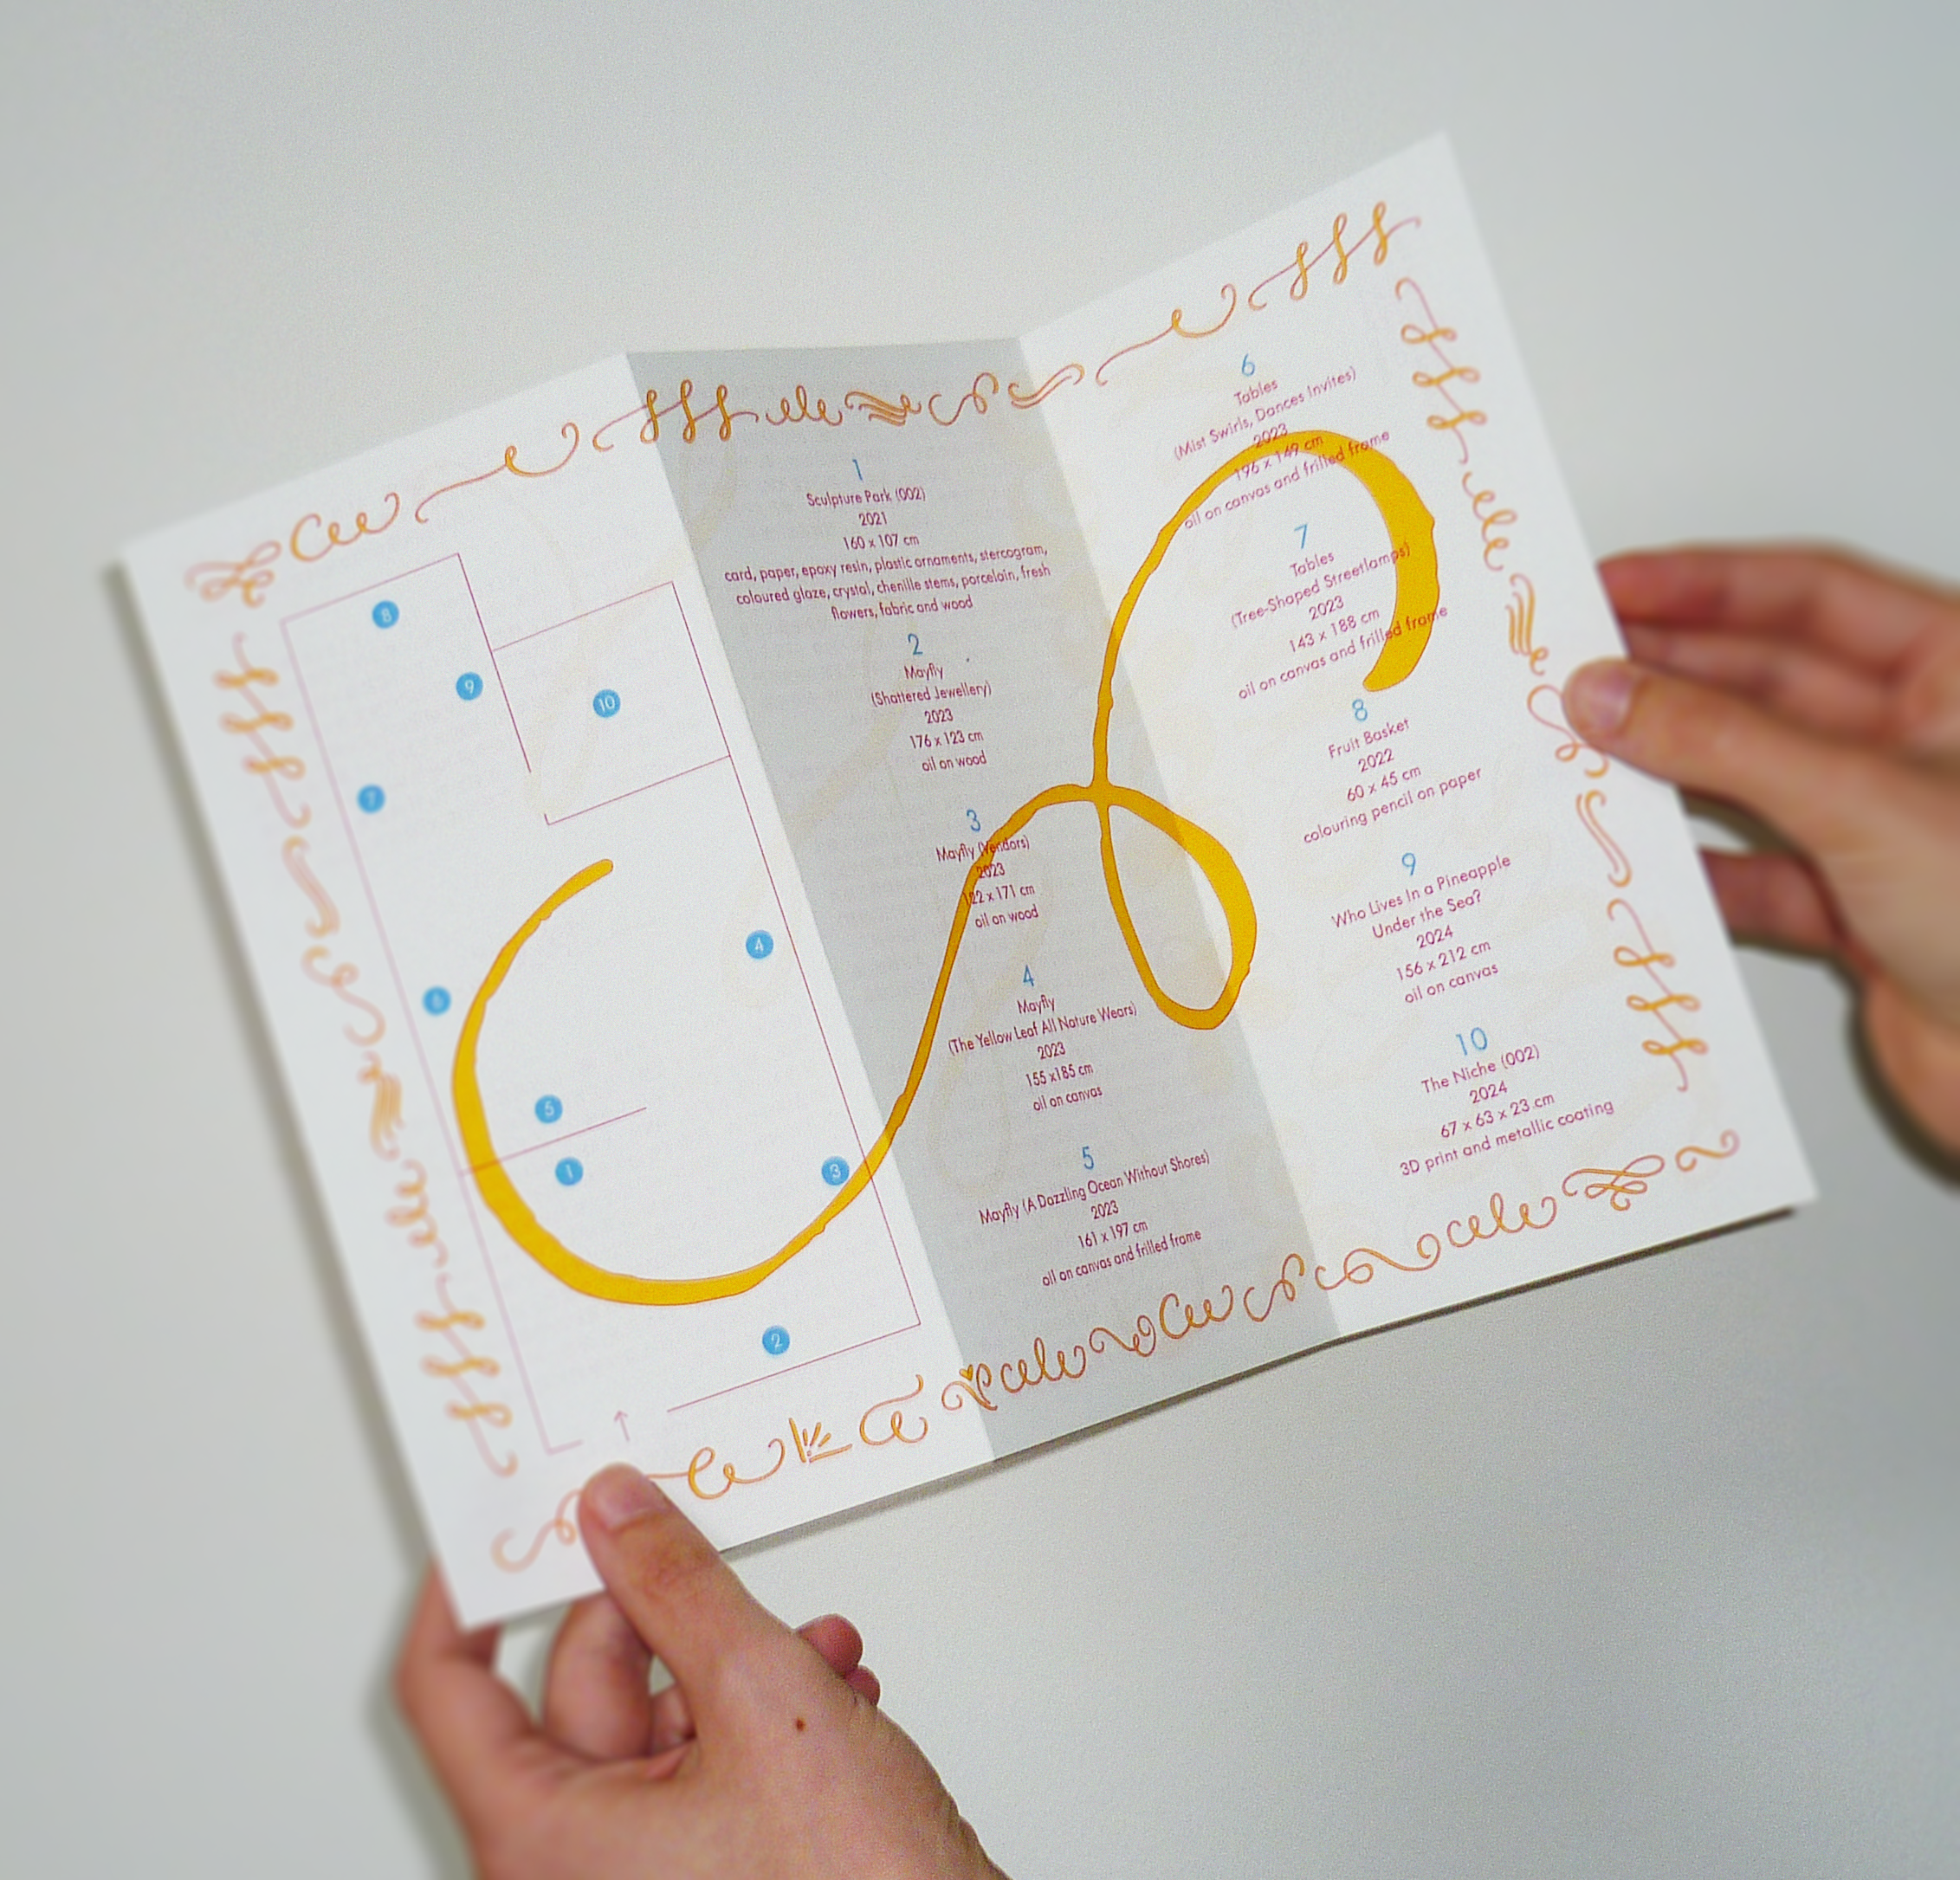 8
9
10
7
6
4
5
1
3
2
1
Sculpture Park (002)
2021
160 x 107 cm
card, paper, epoxy resin, plastic ornaments, stercogram,
coloured glaze, crystal, chenille stems, porcelain, fresh
flowers, fabric and wood
2
Mayfly
(Shattered Jewellery)
2023
176 x 123 cm
oil on wood
3
Mayfly (Vendors)
2023
122 x 171 cm
oil on wood
4
Mayfly
(The Yellow Leaf All Nature Wears)
2023
155 x185 cm
oil on canvas
5
Mayfly (A Dazzling Ocean Without Shores)
2023
161 x 197 cm
oil on canvas and frilled frame
6
Tables
(Mist Swirls, Dances Invites)
2023
196 x 149 cm
oil on canvas and frilled frame
7
Tables
(Tree-Shaped Streetlamps)
2023
143 x 188 cm
oil on canvas and frilled frame
8
Fruit Basket
2022
60 x 45 cm
colouring pencil on paper
9
Who Lives In a Pineapple
Under the Sea?
2024
156 x 212 cm
oil on canvas
10
The Niche (002)
2024
67 x 63 x 23 cm
3D print and metallic coating